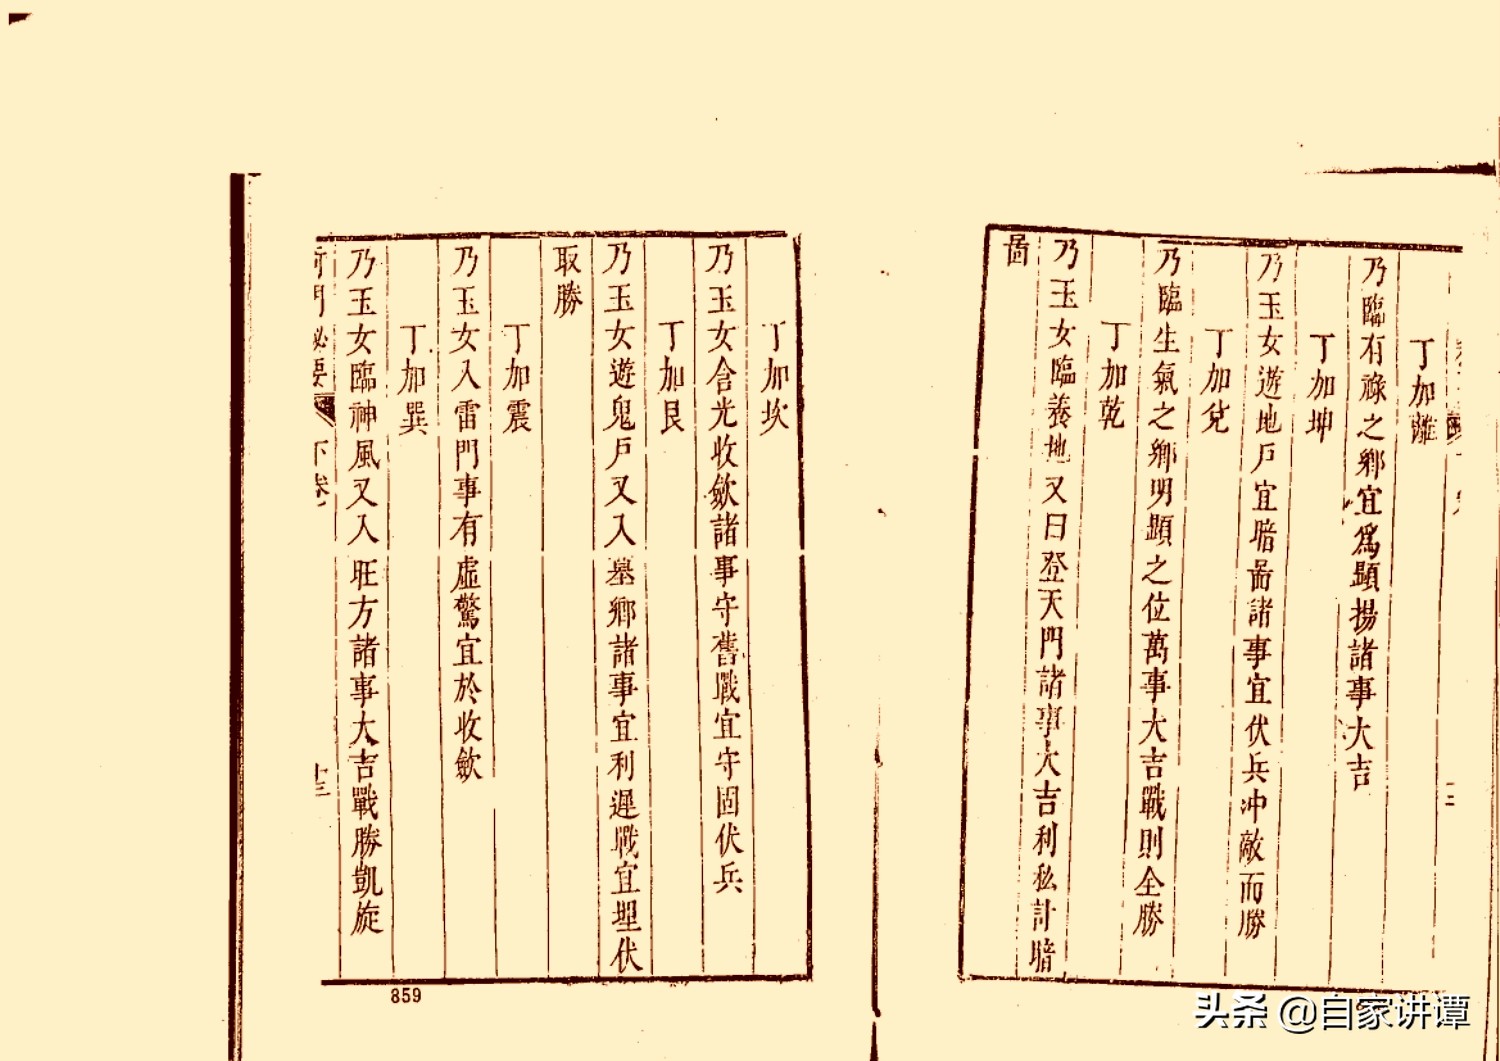 丁加離
乃臨有祿之鄉宜爲顯揚諸事大吉
丁加坤
乃玉女遊地戶宜暗啚諸事宜伏兵冲敵而勝
丁加兌
乃臨生氣之鄉明顯之位萬事大吉戰則全勝
丁加乾
乃玉女臨養地又曰登天門諸事大吉利私計暗
啚
丁加坎
乃玉女含光收歛諸事守舊戰宜守固伏兵
丁加艮
乃玉女遊鬼戶又入墓鄉諸事宜利遲戰宜埋伏
取勝
丁加震
乃玉女入雷門事有虛驚宜於收歛
丁加巽
乃玉女臨神風又入旺方諸事大吉戰勝凱旋
奇門秘要 下卷 十三
859
头条 @自家讲谭